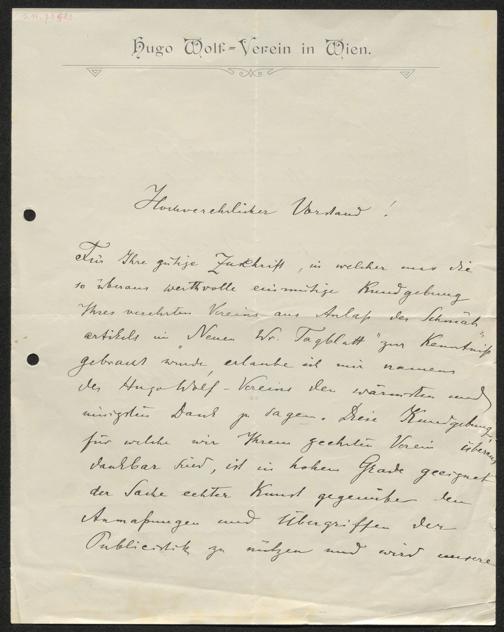 Hugo Wolf-Verein in Wien.
Hochverehrlicher Vorstand!
Für Ihre gütige Zuschrift, in welcher uns die
so überaus werthvolle einmütige Kundgebung
Ihres verehrten Vereins aus Anlaß des Schmäh-
artikels im "Neuen Wr. Tagblatt" zur Kenntniß
gebracht wurde, erlaube ich mir namens
des Hugo Wolf-Vereins den wärmsten und
innigsten Dank zu sagen. Diese Kundgebung,
für welche wir Ihrem geehrten Verein überaus
dankbar sind, ist in hohem Grade geeignet
der Sache echter Kunst gegenüber den
Anmaßungen und Übergriffen der
Publicistik zu nützen und wird unsere